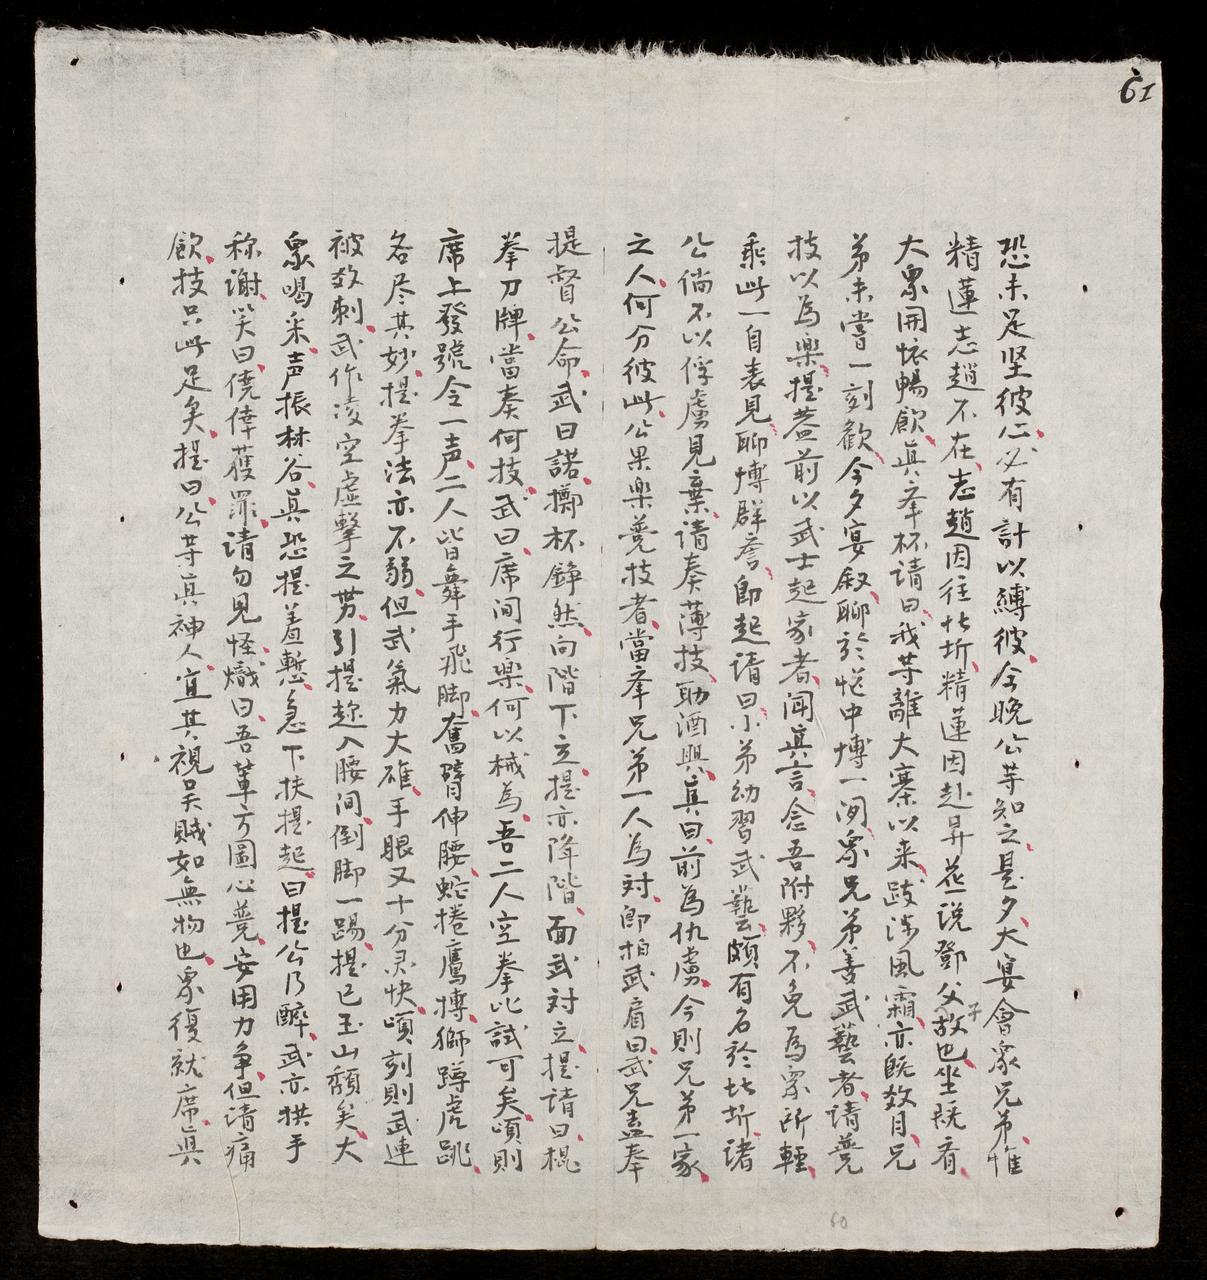 61
恐未足坚彼心必有計以縛彼今晚公等知之是夕大宴會眾兄弟惟
精蓮志趙不在志趙因往北圻精蓮因赴昇花説鄧父子故也坐既看
大眾開懷暢飲眞举杯請曰我等離大寨以来跋涉風霜亦既数月兄
弟未嘗一刻歡今夕宴叙聊於忙中博一閒眾兄弟善武藝者請竸
技以為樂提蓋前以武士起家者聞眞言念吾附夥不免為眾所輕
乘此一自表見聊博群誉即起請曰小弟幼習武藝頗有名於北圻諸
公倘不以俘虜見棄請奏薄技助酒興眞曰前為仇虜今則兄弟一家
之人何分彼此公果樂竸技者當举兄弟一人為對即拍武肩曰武兄盍奉
提督公命武曰諾擲杯錚然向階下立提亦降階面武対立提請曰棍
拳刀牌當奏何技武曰席间行樂何以械為吾二人空拳比試可矣頃則
席上發號令一声二人皆舞手飛脚奮臂伸腰蛇捲鷹搏獅蹲虎跳
各尽其妙提拳法亦不弱但武氣力大雄手眼又十分灵快頃刻則武連
被数刺武作凌空虚擊之势引提趂入腰间倒脚一踢提已玉山頹矣大
眾喝采声振林谷眞恐提羞慙急下扶提起曰提公乃醉武亦拱手
称謝笑曰僥倖獲罪請勿見怪熾曰吾輩方圖心竸安用力争但請痛
飲技只此足矣提曰公等眞神人宜其視吴贼如無物也眾復就席眞
60